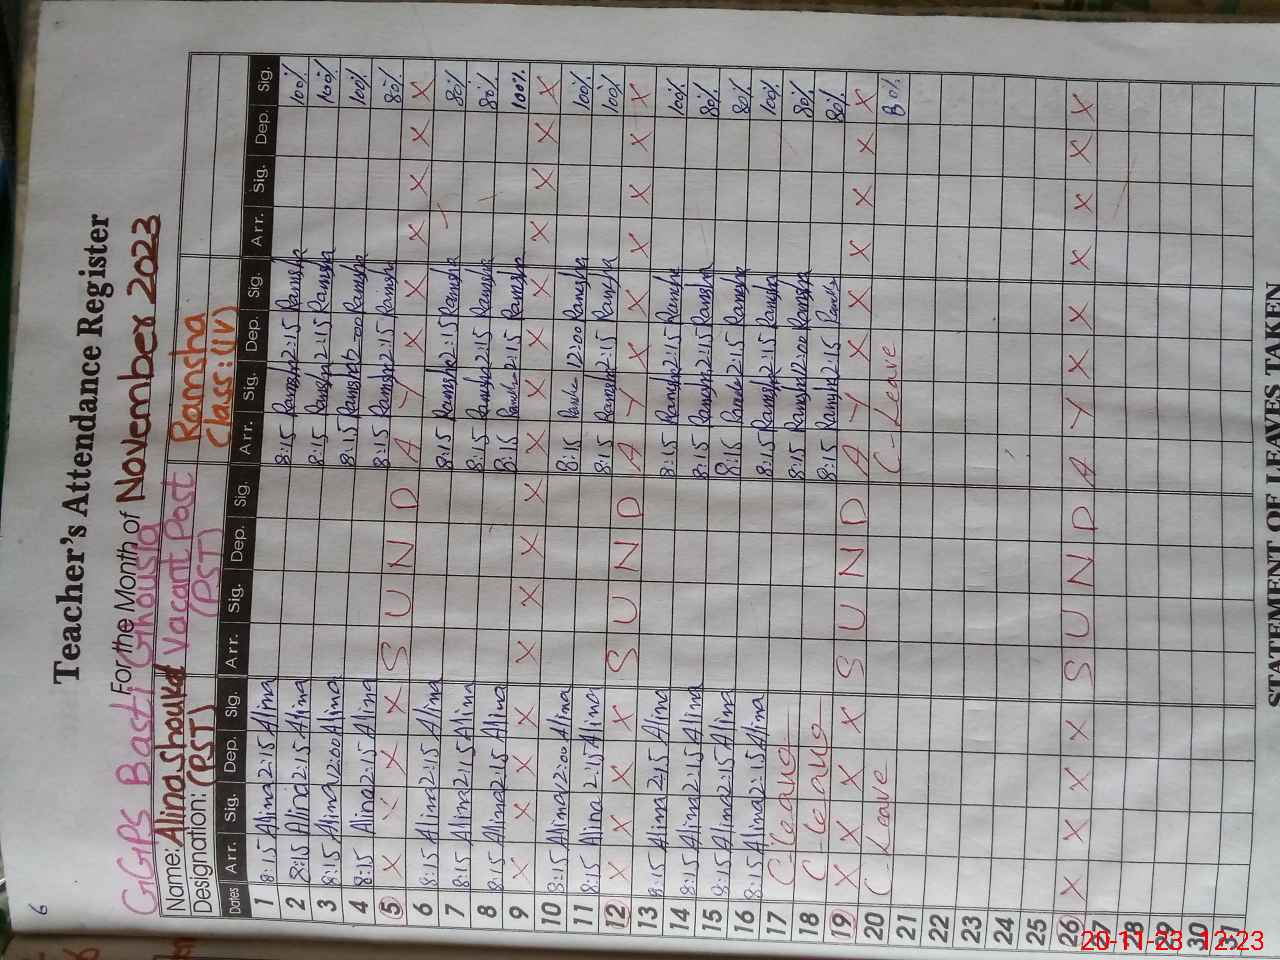 6
Teacher's Attendance Register
GGPS Basti Ghousia For the Month of November 2023
Name: Alina Shoukat Vacant Post Ramsha
Designation: (PST) (PST) Class:(IV)
Dates Arr. Sig. Dep. Sig. Arr. Sig. Dep. Sig. Arr. Sig. Dep. Sig. Arr. Sig. Dep. Sig.
1 8:15 Alina 2:15 Alina 8:15 Ramsha 2:15 Ramsha 100%
2 8:15 Alina 2:15 Alina 8:15 Ramsha 2:15 Ramsha 100%
3 8:15 Alina 12:00 Alina 8:15 Ramsha 12:00 Ramsha 100%
4 8:15 Alina 2:15 Alina 8:15 Ramsha 2:15 Ramsha 80%
5 X X X X S U N D A Y X X X X X X
6 8:15 Alina 2:15 Alina 8:15 Ramsha 2:15 Ramsha 80%
7 8:15 Alina 2:15 Alina 8:15 Ramsha 2:15 Ramsha 80%
8 8:15 Alina 2:15 Alina 8:15 Ramsha 2:15 Ramsha 100%
9 X X X X X X X X X X X X X X X X
10 8:15 Alina 12:00 Alina 8:15 Ramsha 12:00 Ramsha 100%
11 8:15 Alina 2:15 Alina 8:15 Ramsha 2:15 Ramsha 100%
12 X X X X S U N D A Y X X X X X X
13 8:15 Alina 2:15 Alina 8:15 Ramsha 2:15 Ramsha 100%
14 8:15 Alina 2:15 Alina 8:15 Ramsha 2:15 Ramsha 80%
15 8:15 Alina 2:15 Alina 8:15 Ramsha 2:15 Ramsha 80%
16 8:15 Alina 2:15 Alina 8:15 Ramsha 2:15 Ramsha 100%
17 C-leave 8:15 Ramsha 12:00 Ramsha 80%
18 C-leave 8:15 Ramsha 2:15 Ramsha 80%
19 X X X X S U N D A Y X X X X X X
20 C-Leave C-Leave 80%
21
22
23
24
25
26 X X X X S U N D A Y X X X X X X
27
28
29
30
31
STATEMENT OF LEAVES TAKEN
20-11-23 12:23